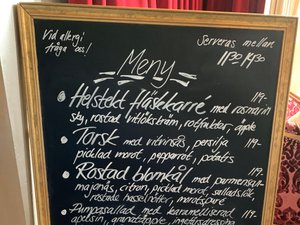 Vid allergi
fråga oss!
Serveras mellan
11:30-14:30
Meny
Helstekt fläskkarré med rosmarin 119:-
sky, rostad vitlökskräm, rotfrukter, äpple
Torsk med vitvinssås, persilja 119:-
picklad morot, pepparrot, potatis
Rostad blomkål med parmesan- 119:-
majonäs, citron, picklad morot, salladslök
rostade hasselnötter, morotspuré
Pumpasallad med karamelliserad 119:-
apelsin, granatäpple,